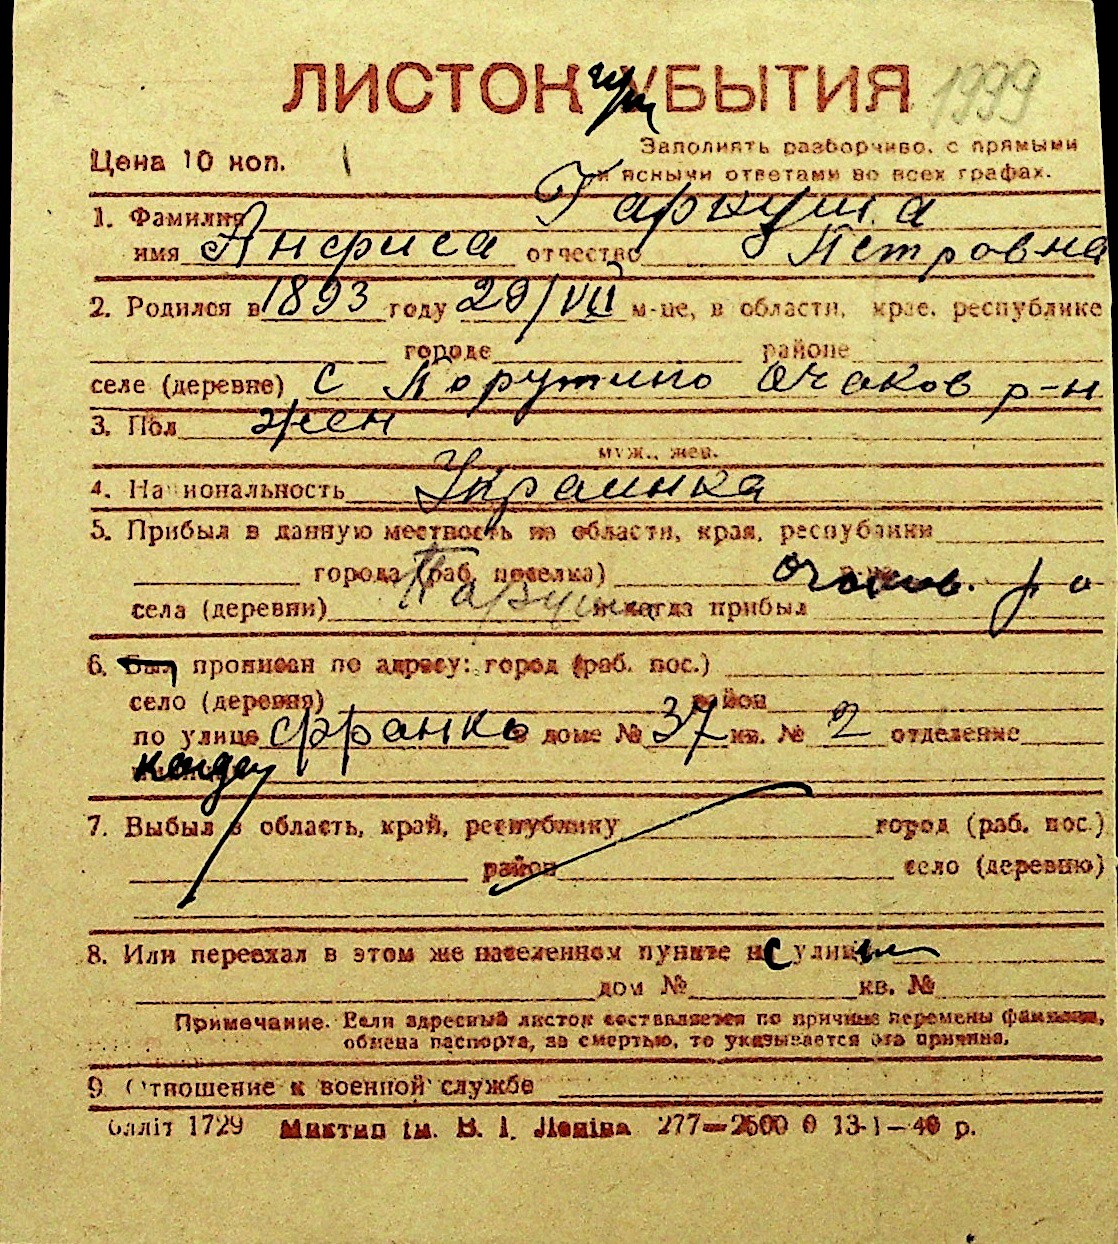 ЛИСТОК УБЫТИЯ 1999
Цена 10 коп.
Заполнять разборчиво, с прямыми
и ясными ответами во всех графах.
1. Фамилия Гаркуша
имя Анфиса отчество Петровна
2. Родился в 1893 году 29/VIII м-це, в области, крае, республике
городе районе
селе (деревне) с Порутино Очаков р-н
3. Пол жен
муж., жен.
4. Национальность Украинка
5. Прибыл в данную местность из области, края, республики
города (раб. поселка) очаков. р-о
села (деревни) Парутино и когда прибыл
6. Был прописан по адресу: город (раб. пос.)
село (деревня) район
по улице Франко в доме № 37 кв. № 2 отделение
7. Выбыл в область, край, республику город (раб. пос.)
район село (деревню)
8. Или переехал в этом же населенном пункте с улицы
дом № кв. №
Примечание. Если адресный листок составляется по причине перемены фамилии,
обмена паспорта, за смертью, то указывается эта причина.
9 Отношение к военной службе
блліт 1729 Миктип ім. В. І. Леніна 277—2500 0 13-1—40 р.